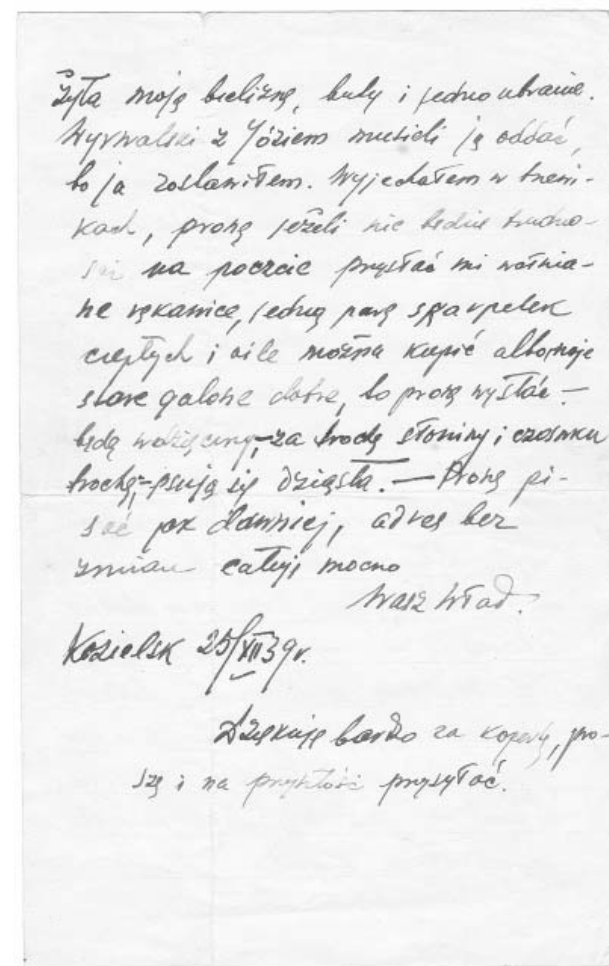 żyła moją bieliznę, buty i jedno ubranie.
Wyrwalski z Józiem musieli ją oddać,
bo ja zostawiłem. Wyjechałem w treni-
kach, proszę jeżeli nie będzie trudno-
ści na poczcie przysłać mi wełnia-
ne rękawice, jedną parę skarpetek
ciepłych i o ile można kupić albo moje
stare galosze dobre, to proszę wysłać –
będę wdzięczny, – za trochę słoniny i czosnku
trochę, – psują się dziąsła. – Proszę pi-
sać jak dawniej, adres bez
zmian całuję mocno
Wasz Wład.
Kozielsk 25/XII 39r.
Dziękuję bardzo za kopertę, pro-
szę i na przyszłość przysyłać.